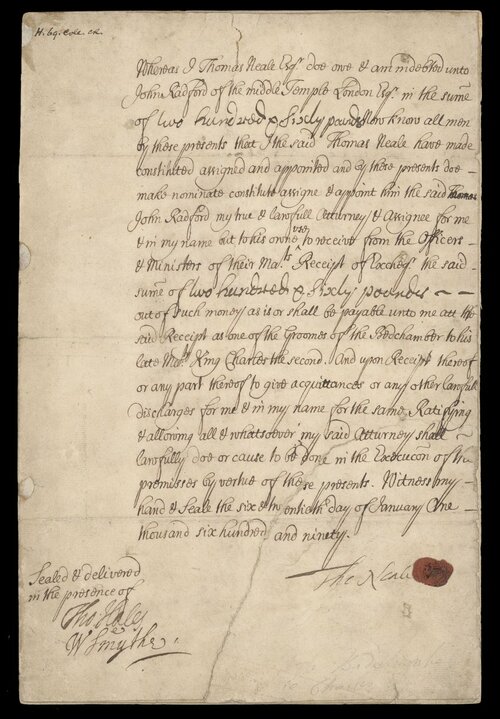 H. 69. Cole. ck.
Whereas I Thomas Neale Esqr. doe owe & am indebted unto
John Radford of the middle Temple London Esqr. in the sume
of two hundred & sixty pounds Now know all men
by these presents that I the said Thomas Neale have made
constituted assigned and appointed and by these presents doe –
make nominate constitute assigne & appoint him the said Thomas
John Radford my true & lawfull Atturney & Assignee for me
& in my name but to his owne use to receive from the Officers –
& Ministers of their Mats. Receipt of Excheqr. the said –
sume of two hundred & sixty pounds – –
out of such money as is or shall be payable unto me att the
said Receipt as one of the Groomes of the Bedchamber to his
late Maty. King Charles the second. And upon Receipt thereof
or any part thereof to give acquittances or any other lawfull
discharges for me & in my name for the same, Ratifying
& allowing all & whatsoever my said Atturney shall –
lawfully doe or cause to be done in the Execucon of the
premisses by vertue of these presents. Witness my –
hand & Seale the six & twentieth day of January One –
thousand six hundred and ninety.
Tho Neale
Sealed & delivered
in the presence of
Tho: Hales
W Smythe.